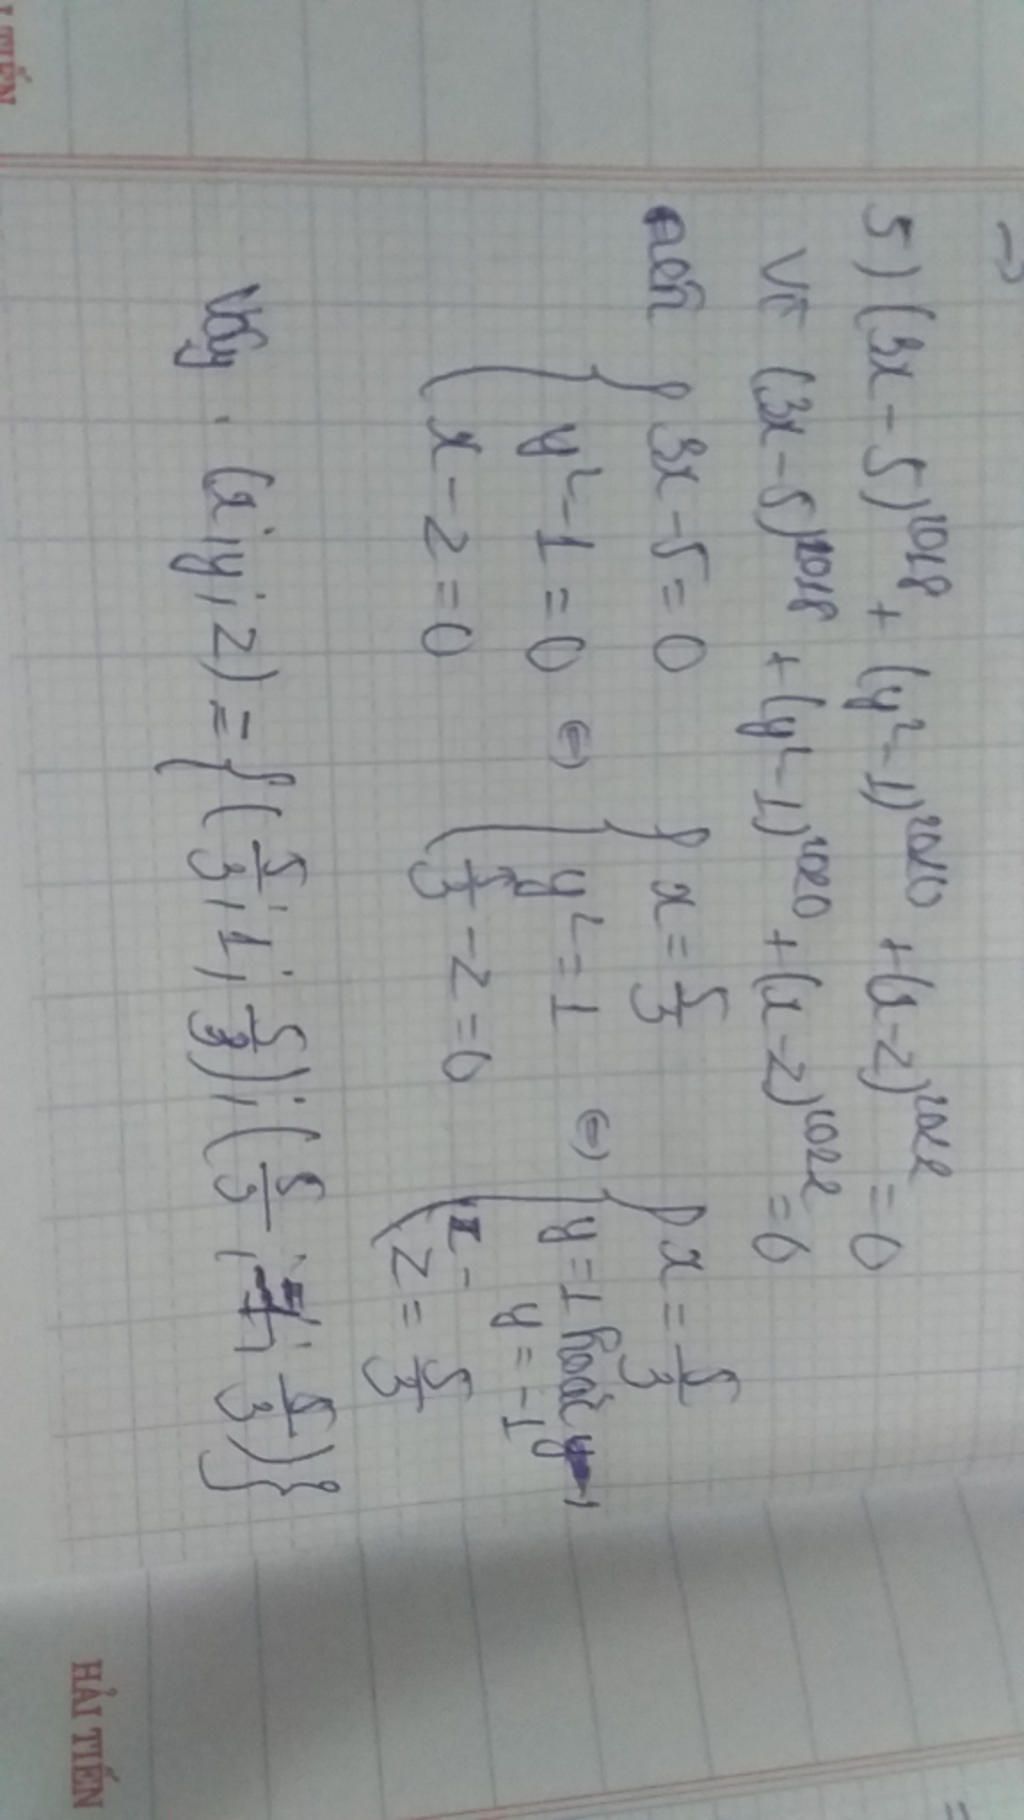 5) (3x - 5)²⁰¹⁸ + (y² - 1)²⁰²⁰ + (x - z)²⁰²² = 0
Vì (3x - 5)²⁰¹⁸ + (y² - 1)²⁰²⁰ + (x - z)²⁰²² = 0
nên { 3x - 5 = 0 ; y² - 1 = 0 ; x - z = 0 ⇔ { x = 5/3 ; y² = 1 ; 5/3 - z = 0 ⇔ { x = 5/3 ; y = 1 hoặc y = -1 ; z = 5/3
Vậy (x; y; z) = {(5/3; 1; 5/3); (5/3; -1; 5/3)}
HẢI TIẾN